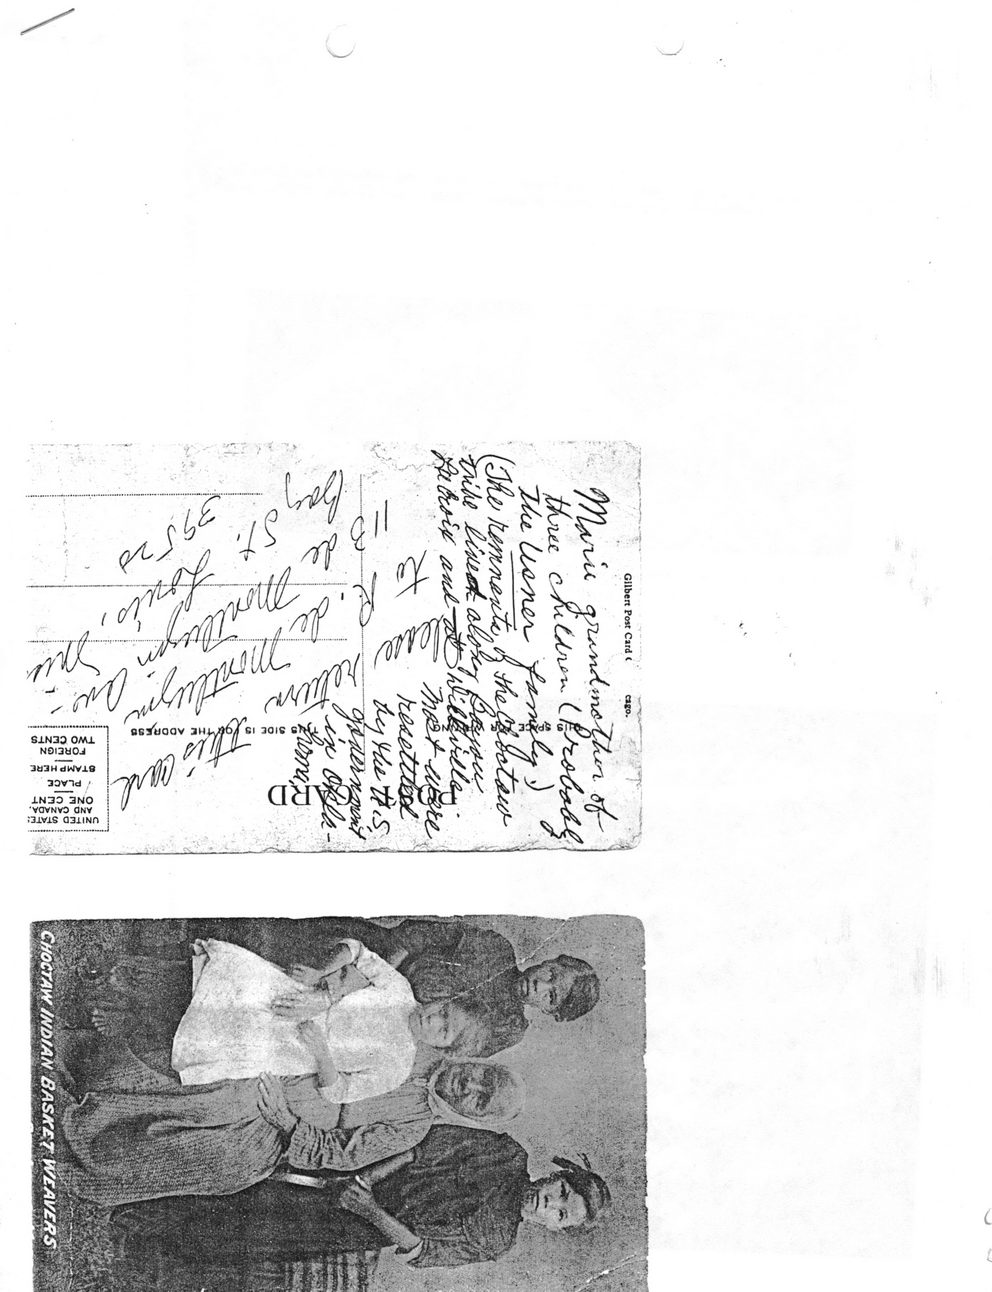 Marie grandmother of
three children (Probably
The Usner family.)
(The remnants of the Choctaw
tribe lined along Bayou
Lacroix and at Dillville.
Most were
resettled
by the U.S
government
in Okla-
homa.
Please return this card
to R. de Montluzin
113 de Montluzin Ave -
Bay St. Louis, Miss
39520
POST CARD
THIS SPACE FOR WRITING
THIS SIDE IS FOR THE ADDRESS
UNITED STATES
AND CANADA,
ONE CENT
PLACE
STAMP HERE
FOREIGN
TWO CENTS
Gilbert Post Card C
cago.
CHOCTAW INDIAN BASKET WEAVERS